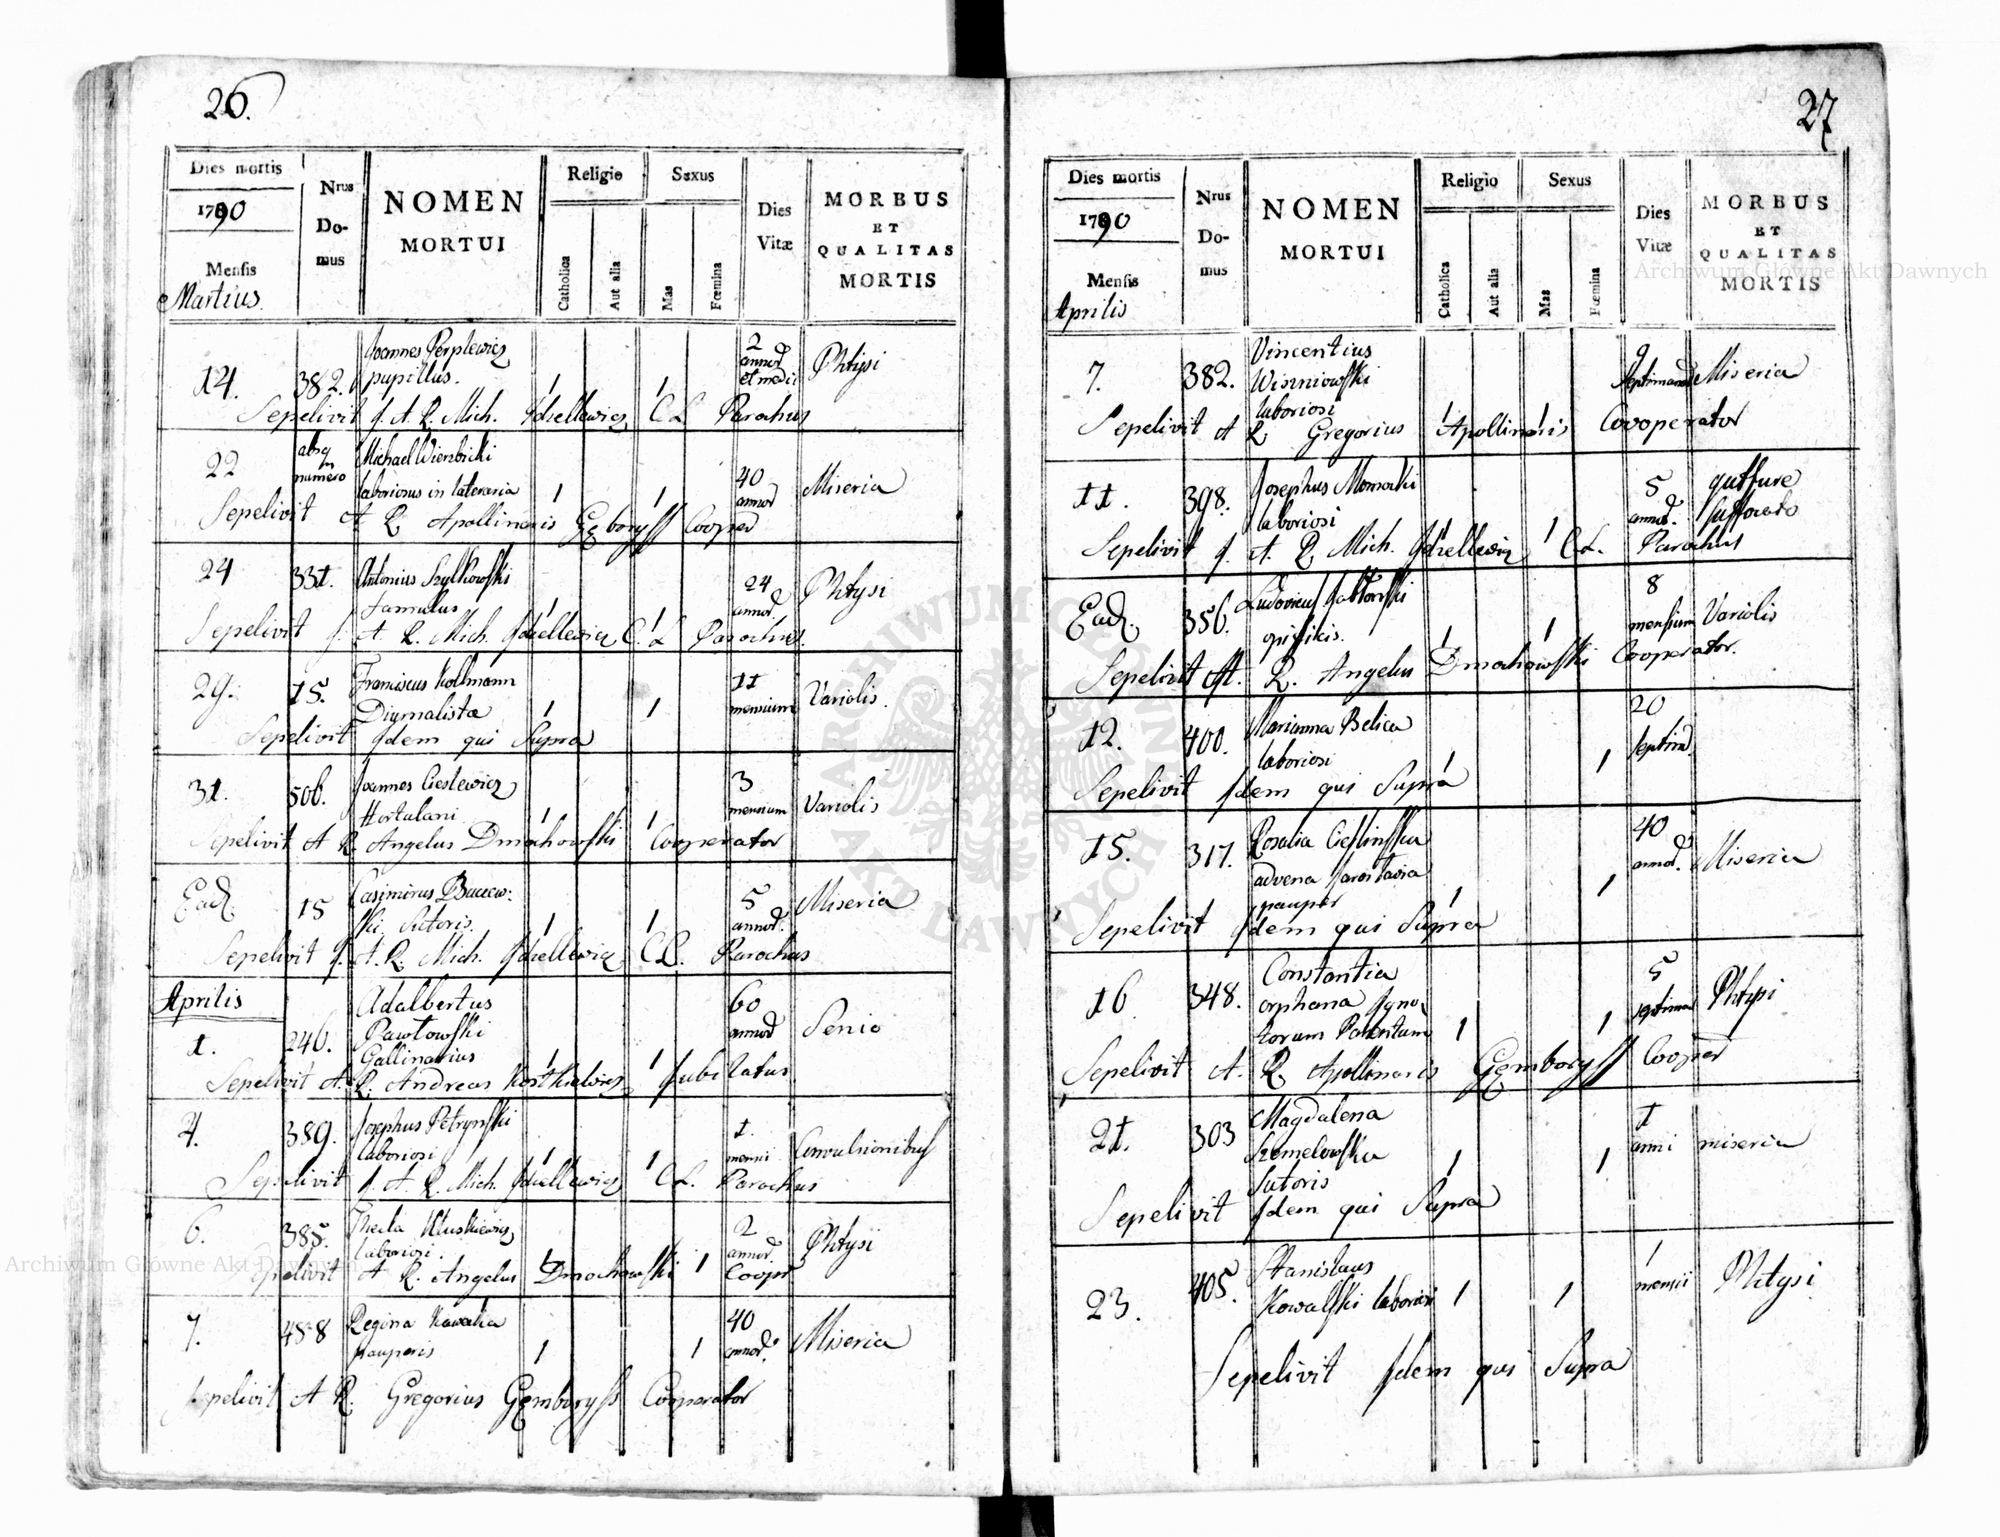 26.
Dies mortis
1790
Mensis
Martius.
Nrus
Do-
mus
NOMEN
MORTUI
Religio
Catholica
Aut alia
Sexus
Mas
Fœmina
Dies
Vitæ
MORBUS
ET
QUALITAS
MORTIS
14. 382. Joannes Perplewicz 2
pupillus. 1 1 annor et medii Phtysi
Sepelivit J. A. R. Mich. C. L. Parochus
22 absq numero Michael Wierzbicki 40
laboriosus in lateraria 1 1 annor Miseria
Sepelivit A R. Apollinaris Gęboryss Cooper
24 331. Antonius Szylkowski 24 Phtysi
famulus 1 1 annor
Sepelivit J. A. R. Mich. C. L. Parochus.
29. 15. Franciscus Kollmann 11 Variolis.
Diurnalistæ 1 1 mensium
Sepelivit Idem qui Supra
31. 506. Joannes Cieslewicz 3
Hortulani 1 1 mensium Variolis
Sepelivit A R. Angelus Dmochowski Cooperator
Ead. 15 Casimirus 5 Miseria
Sutoris. 1 1 annor.
Sepelivit J. A. R. Mich. C L. Parochus
Aprilis
1. 246. Adalbertus 60
Pawłowski annor Senio
Gallinarius 1 1
Sepelivit A. R. Andreas Jubilatus
4. 389. Josephus Petrynski 1.
laboriosi 1 1 mensii Convulsionibus
Sepelivit J. A. R. Mich. C L. Parochus
6. 385. Thecla 2 Phtysi
laboriosi. 1 1 annor
Sepelivit A R. Angelus Dmochowski Cooper
7. 488 Regina Kawecka 40 Miseria
pauperis 1 1 annor.
Sepelivit A R. Gregorius Gęmboryss Cooperator
27
Dies mortis
1790
Mensis
Aprilis
Nrus
Do-
mus
NOMEN
MORTUI
Religio
Catholica
Aut alia
Sexus
Mas
Fœmina
Dies
Vitæ
MORBUS
ET
QUALITAS
MORTIS
7. 382. Vincentius 9
Wiszniowski Septimanar Miseria
laboriosi 1 1
Sepelivit A R. Gregorius Apollinaris Cooperator
11. 398. Josephus 5 gutture
laboriosi 1 1 annor. suffocato
Sepelivit J. A. R. Mich. C. L. Parochus
Ead. 356. Ludovicus Jabłonski 8
opificis. 1 1 mensium Variolis
Sepelivit A. R. Angelus Dmochowski Cooperator.
12. 400. Marianna Belica 20
laboriosi 1 1 septim.
Sepelivit Idem qui Supra
15. 317. Rosalia Cieslinska 40
advena Jaroslavia annor. Miseria
pauper 1 1
Sepelivit Idem qui Supra
16 348. Constantia 5
orphana Igno- septimar Phtysi
torum Parentum 1 1
Sepelivit A. R. Apollinaris Gęmboryss Cooper
21. 303 Magdalena 1
Szemelowska 1 1 anni miseria
Sutoris
Sepelivit Idem qui Supra
23. 405. Stanislaus 1
Kowalski laboriosi 1 1 mensii Phtysi
Sepelivit Idem qui Supra
Archiwum Główne Akt Dawnych
Archiwum Główne Akt Dawnych
ARCHIWUM GŁÓWNE AKT DAWNYCH